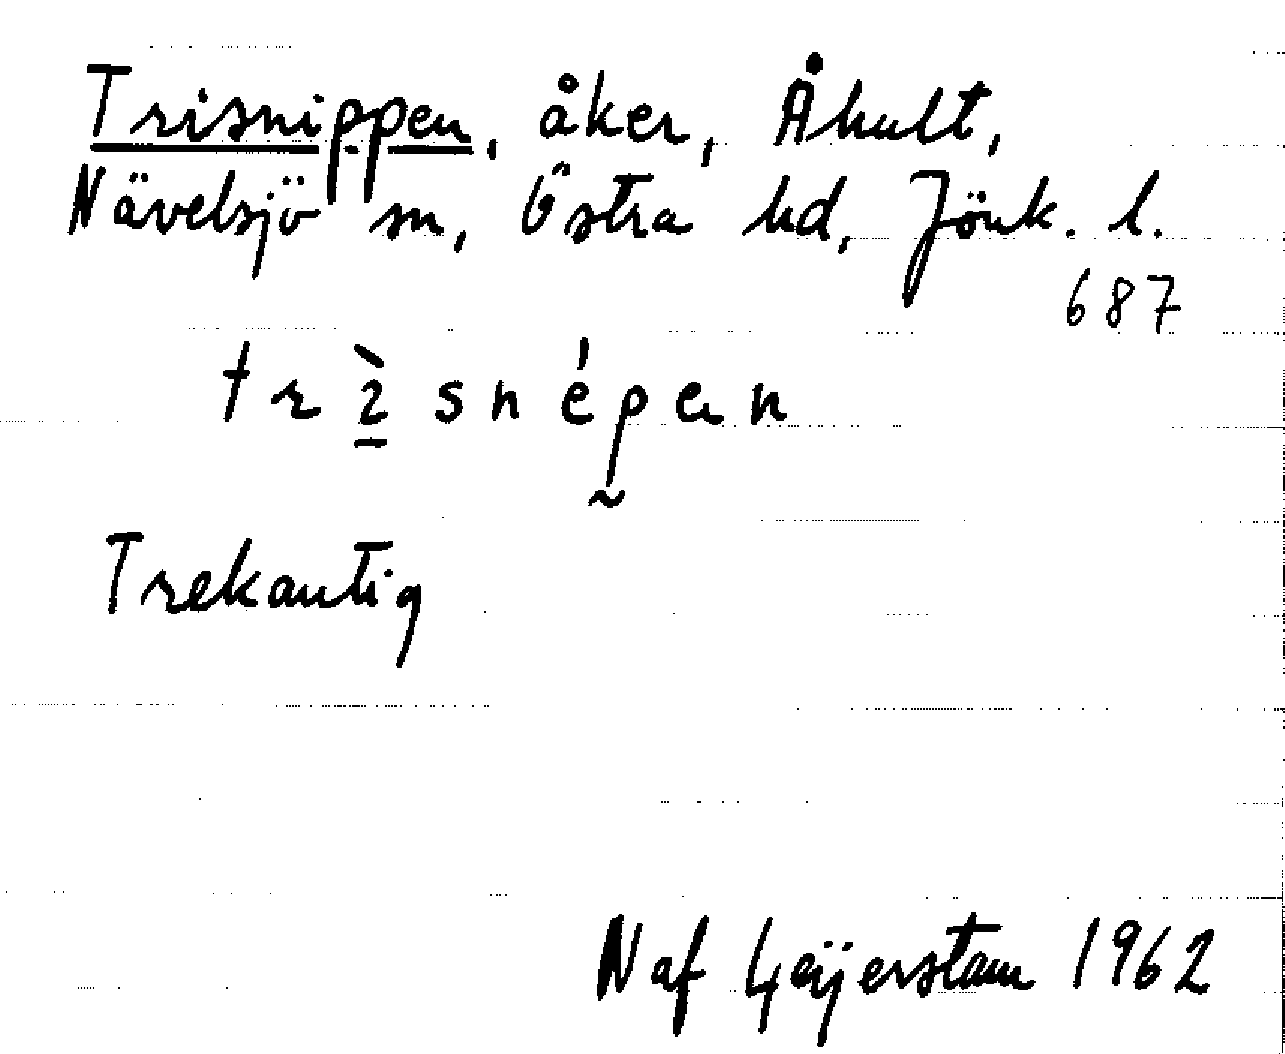 Trisnippen, åker, Åhult,
Nävelsjö sn, Östra hd, Jönk. l.
687
Trekantig
N af Geijerstam 1962